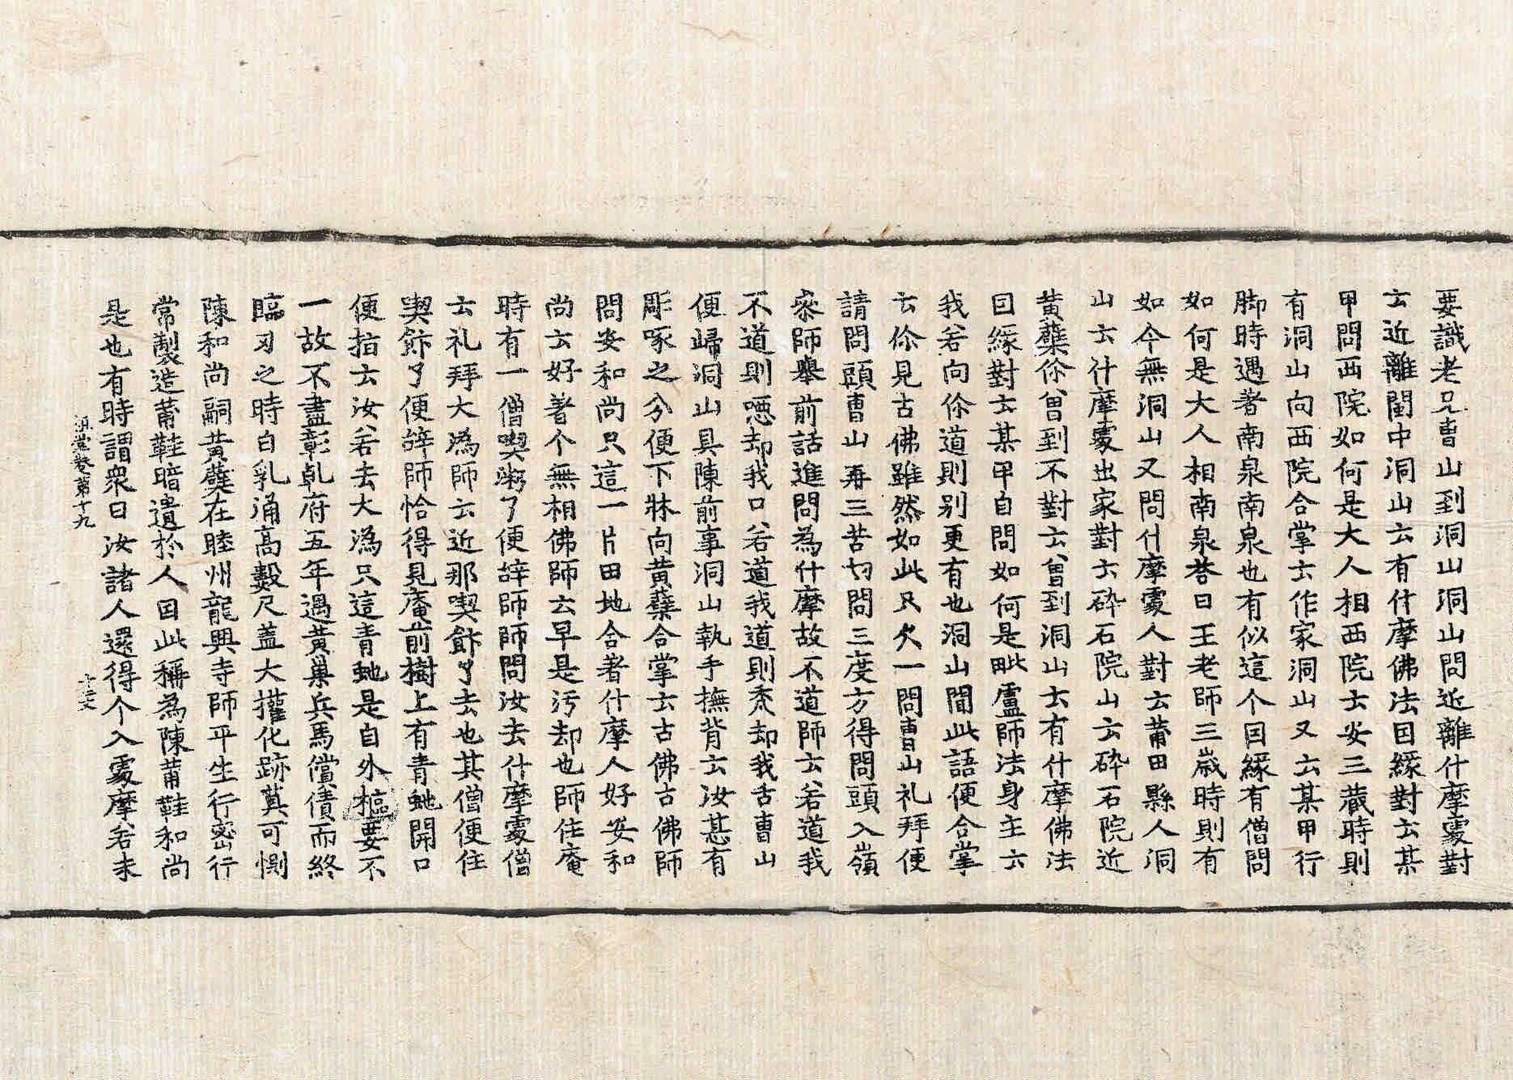 要識老兄曹山到洞山洞山問近離什摩處對
云近離閩中洞山云有什摩佛法因緣對云某
甲問西院如何是大人相西院云安三歲時則
有洞山向西院合掌云作家洞山又云某甲行
脚時遇著南泉南泉也有似這个因緣有僧問
如何是大人相南泉荅曰王老師三歲時則有
如今無洞山又問什摩處人對云莆田縣人洞
山云什摩處出家對云碎石院山云碎石院近
黃蘗你曾到不對云曾到洞山云有什摩佛法
因緣對云某甲自問如何是毗盧師法身主云
我若向你道則別更有也洞山聞此語便合掌
云你見古佛雖然如此只欠一問曹山礼拜便
請問頭曹山再三苦切問三度方得問頭入嶺
參師舉前話進問為什摩故不道師云若道我
不道則啞却我口若道我道則禿却我舌曹山
便歸洞山具陳前事洞山執手撫背云汝甚有
彫啄之分便下牀向黃蘗合掌云古佛古佛師
問安和尚只這一片田地合著什摩人好安和
尚云好著个無相佛師云早是污却也師住庵
時有一僧喫粥了便辝師師問汝去什摩處僧
云礼拜大溈師云近那喫飰了去也其僧便住
喫飰了便辝師恰得見庵前樹上有青虵開口
便指云汝若去大溈只這青虵是自外樞要不
一故不盡彰乹府五年遇黃巢兵馬償債而終
臨刃之時白乳涌高數尺蓋大權化跡莫可惻
陳和尚嗣黃蘗在睦州龍興寺師平生行密行
常製造莆鞋暗遺於人因此稱為陳莆鞋和尚
是也有時謂衆曰汝諸人還得个入處摩若未
祖堂卷第十九